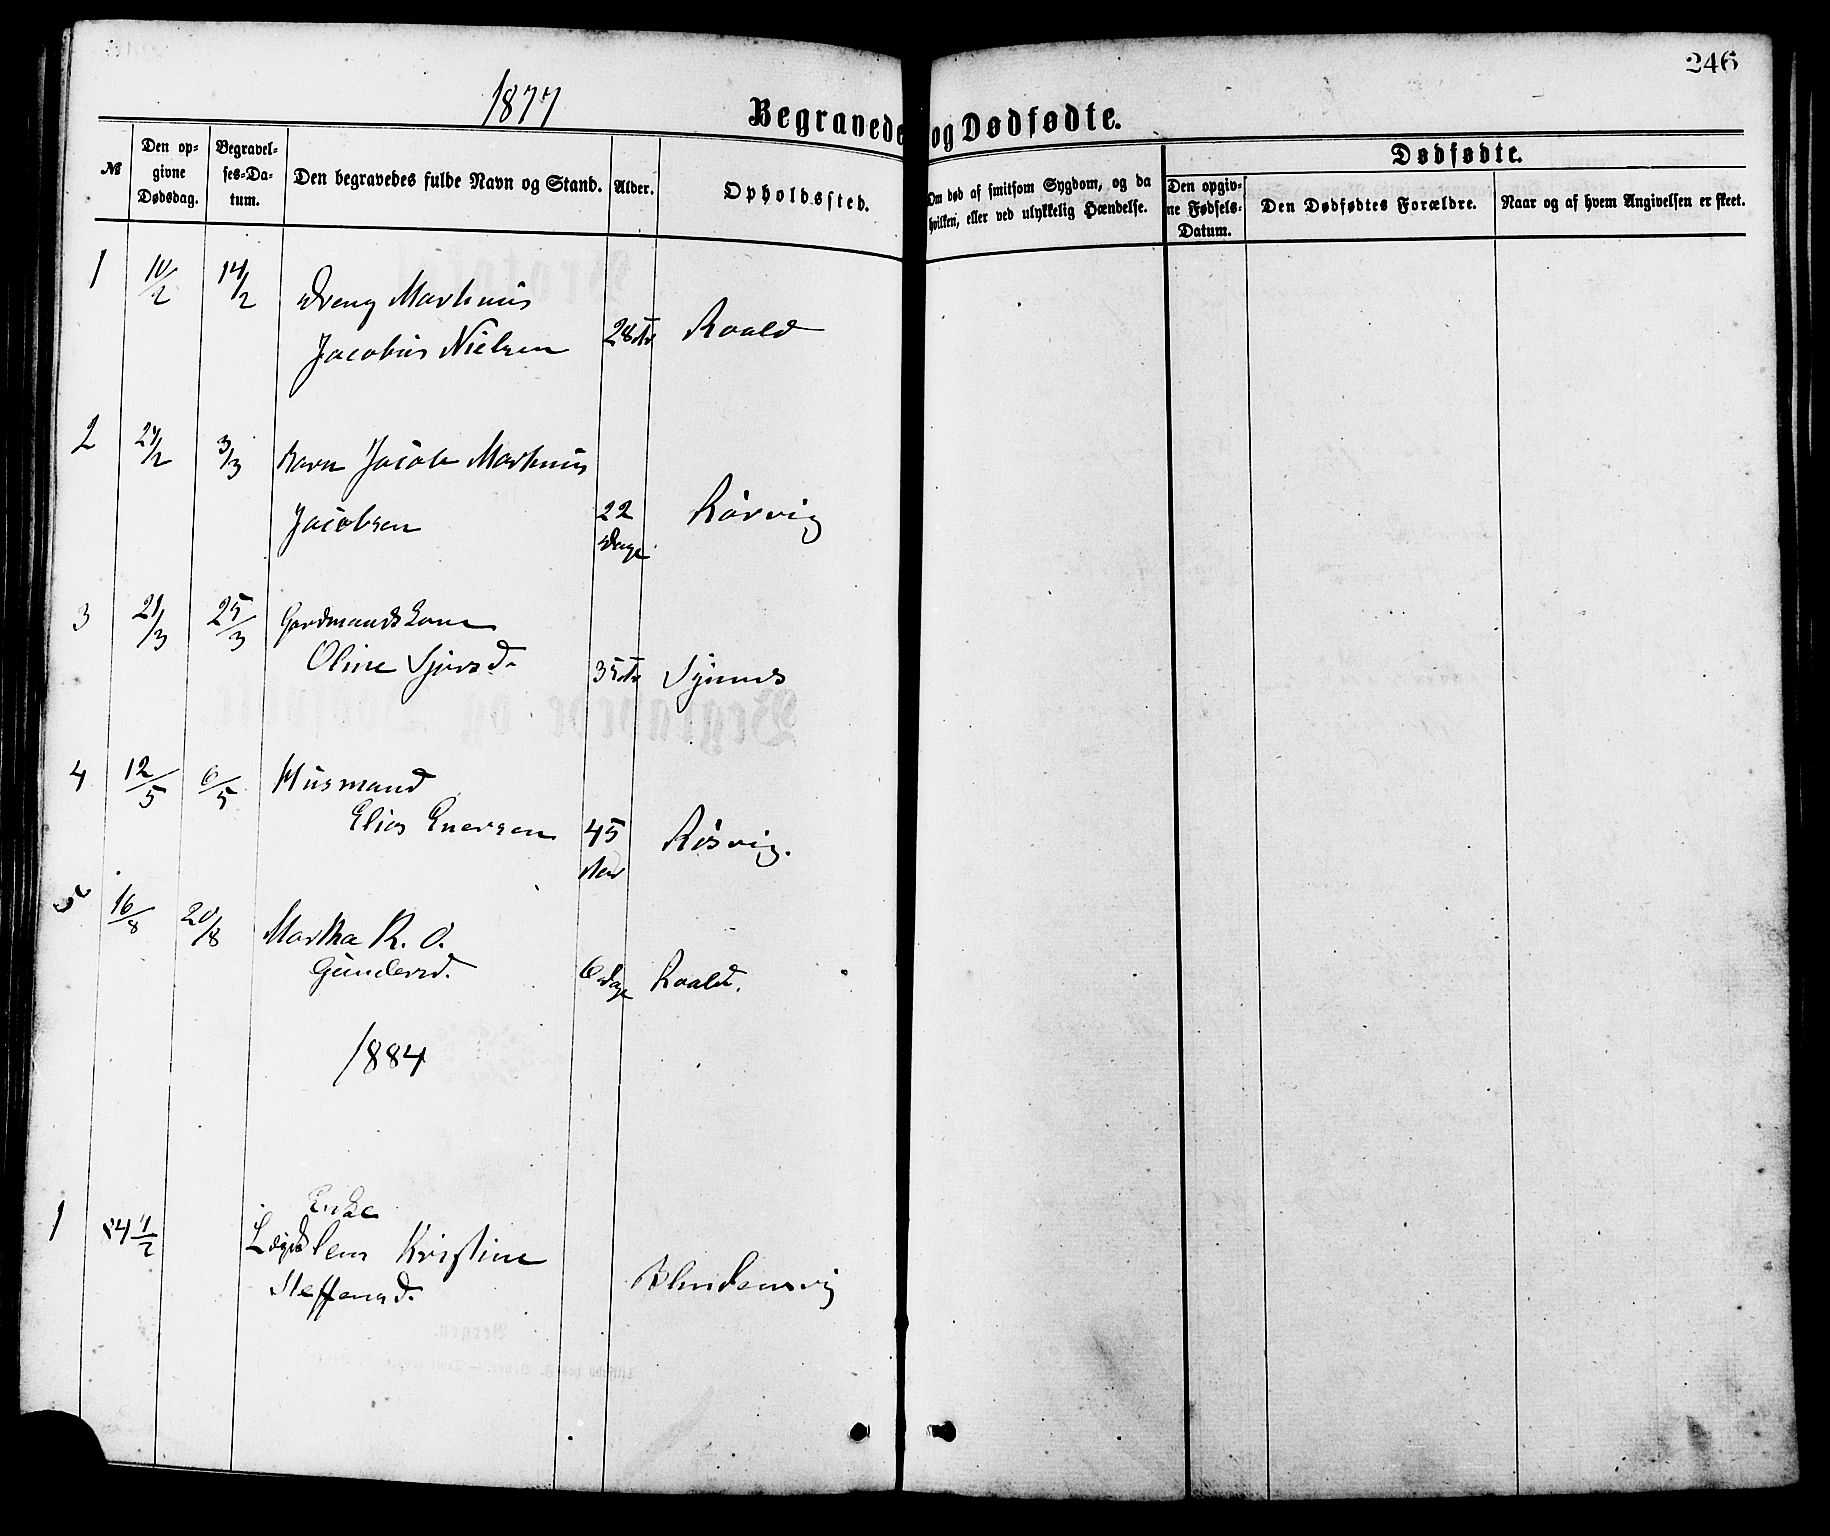 246
1877
Begravede og Dødfødte.
№
Den opgivne Dødsdag.
Begravelses-Datum.
Den begravedes fulde Navn og Stand.
Alder.
Opholdssted.
Om død af smitsom Sygdom, og da
hvilken, eller ved ulykkelig Hændelse.
Dødfødte.
Den opgivne Fødsels-Datum.
Den Dødfødtes Forældre.
Naar og af hvem Angivelsen er skeet.
1 10/2 14/2 Dreng Martinus
Jacobus Nielsen 28 Roald
2 24/2 3/3 Barn Jacob Martinus
Jacobsen 22 Rørvig
Dage
3 21/3 25/3 Gardmandskone
Oline Sjursd. 35 Synnes
4 12/5 6/5 Husmand
Elias Enersen 45 Røsvig.
Aar
5 16/8 20/8 Martha R. O.
Gundersd. 6 Dage Roald.
1884
Enke
1 84 4/2 Lægdslem Kristine
Steffensd. Blindemsvig